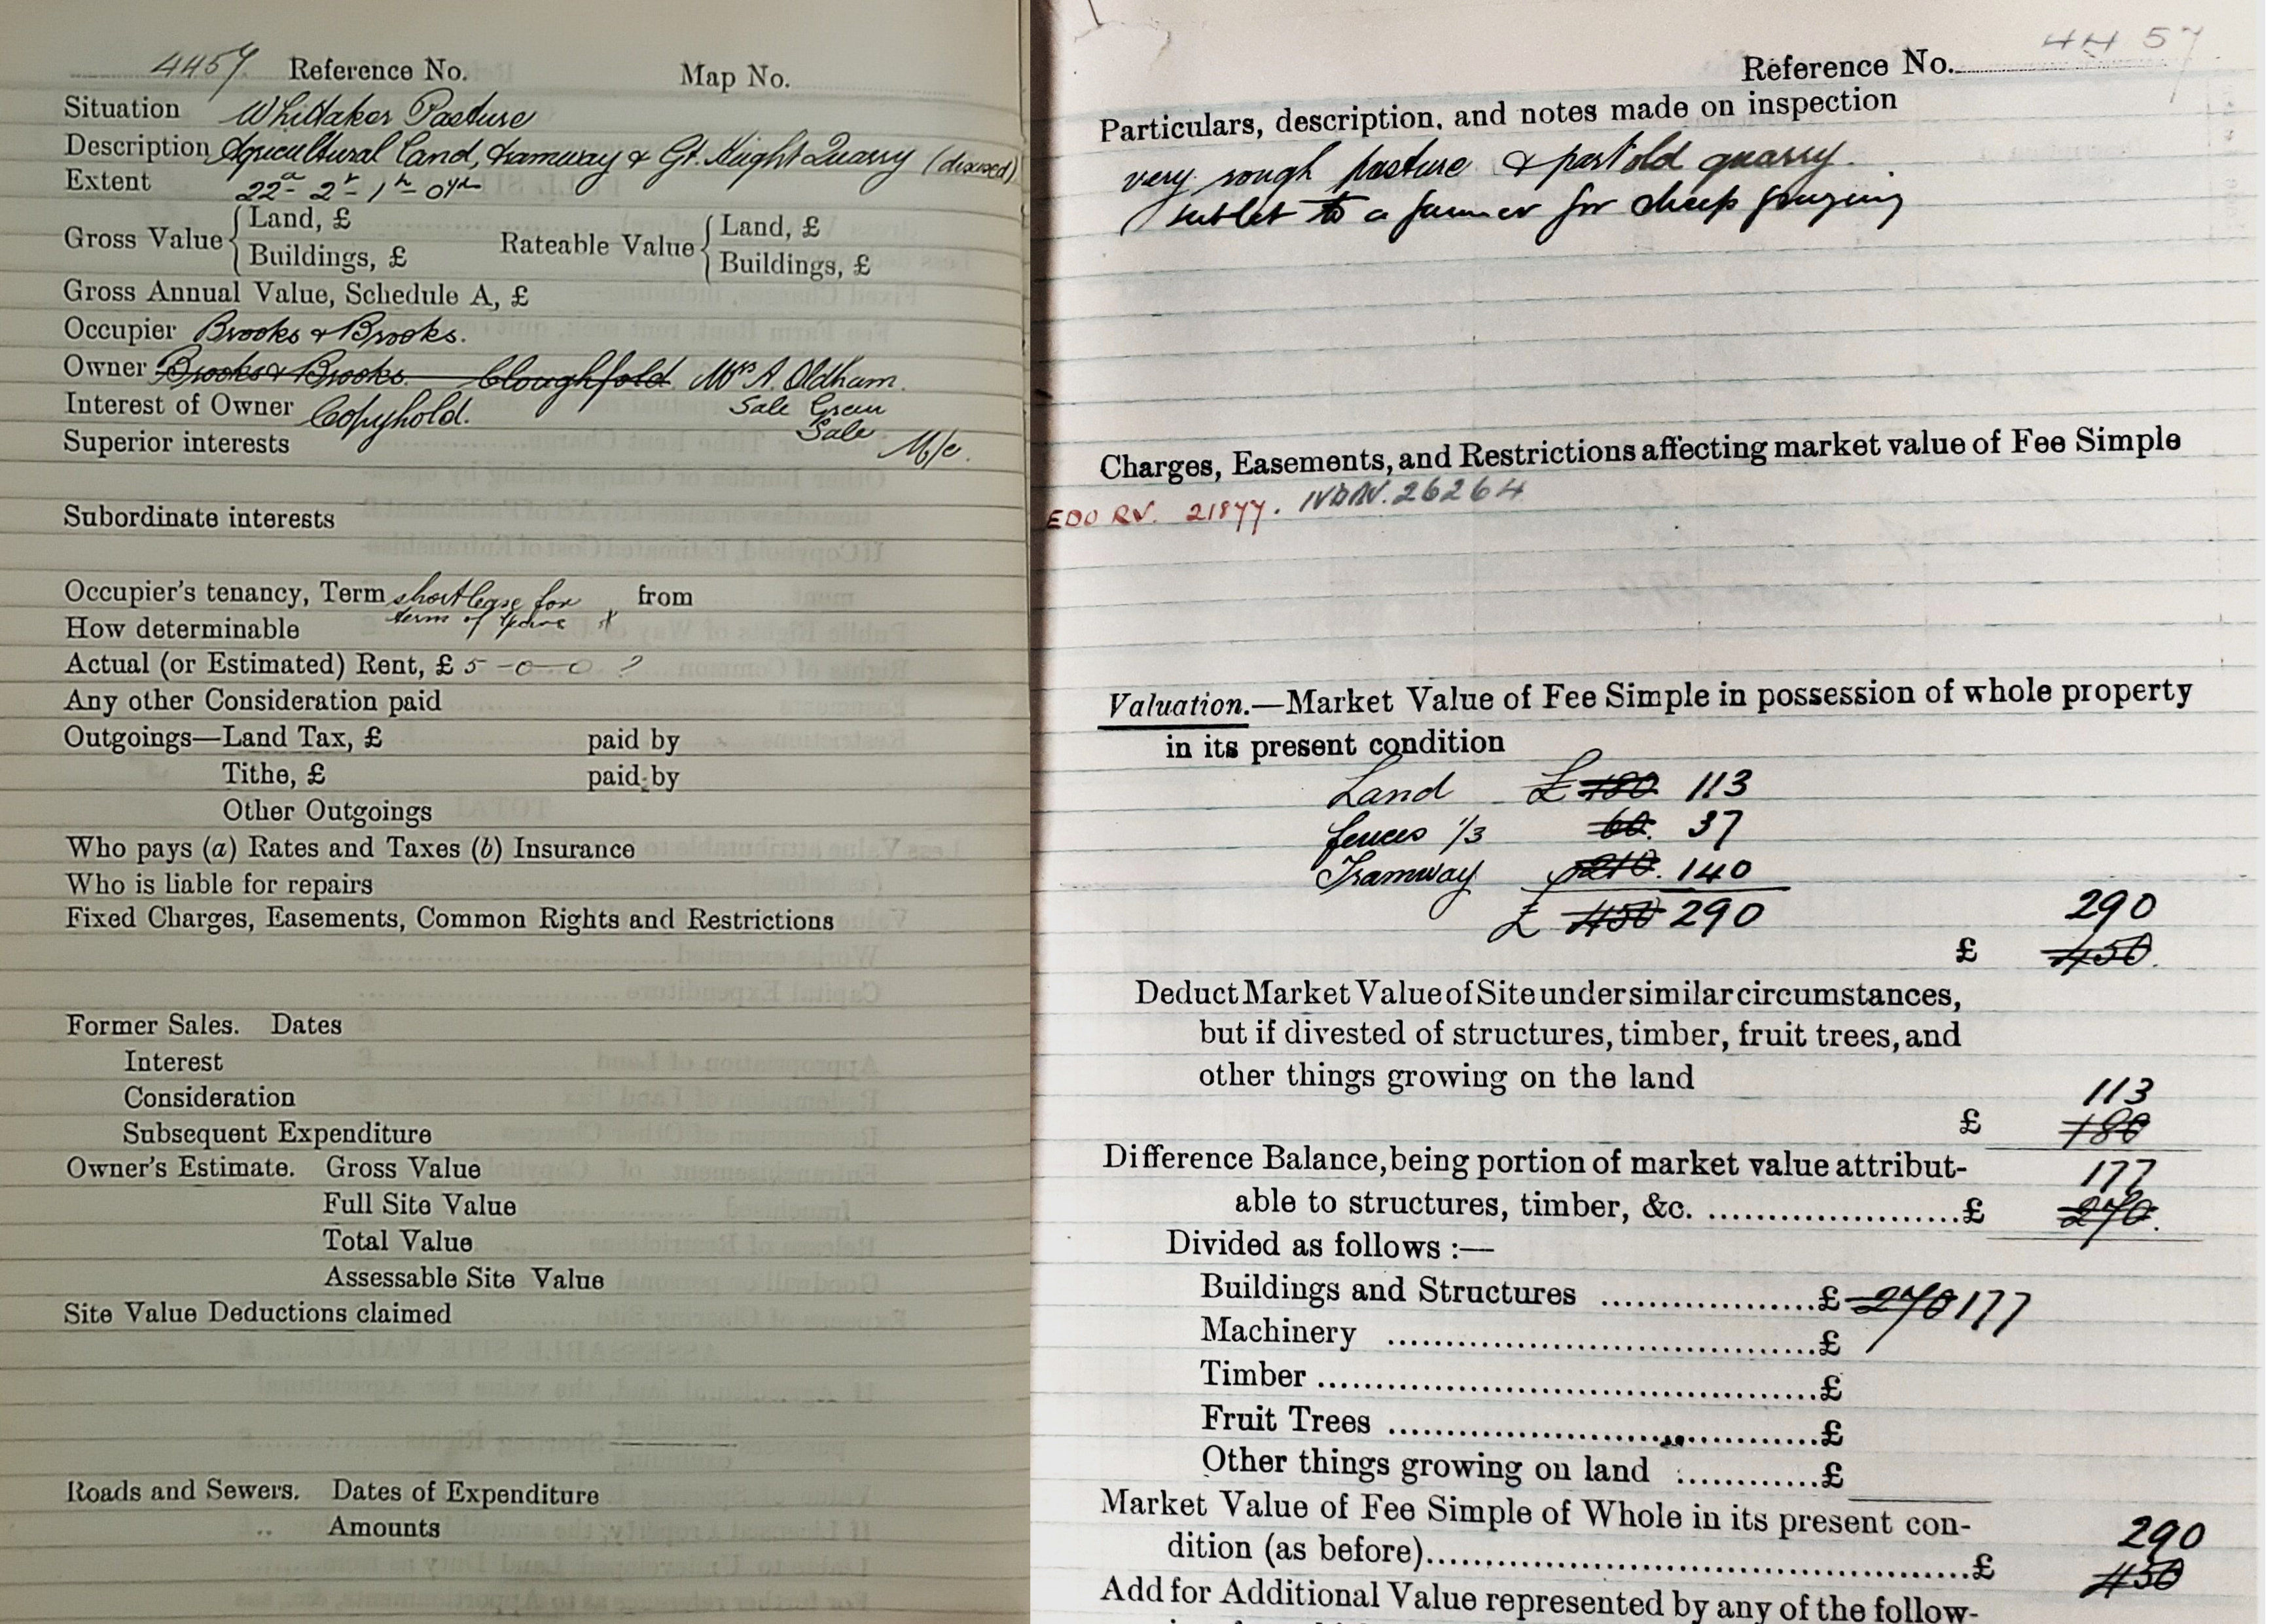 4457 Reference No. Map No.
Situation Whittaker Pasture
Description Agricultural Land, tramway & Gt. Height Quarry (disused)
Extent 22a 2r 1p 0yds
Gross Value { Land, £ Rateable Value { Land, £
Buildings, £ Buildings, £
Gross Annual Value, Schedule A, £
Occupier Brooks & Brooks.
Owner Brooks & Brooks. Cloughfold Mrs A. Oldham.
Interest of Owner Copyhold. Sale Green
Sale
Superior interests M/c.
Subordinate interests
Occupier's tenancy, Term short lease for from
term of years
How determinable
Actual (or Estimated) Rent, £ 5-0-0 ?
Any other Consideration paid
Outgoings—Land Tax, £ paid by
Tithe, £ paid by
Other Outgoings
Who pays (a) Rates and Taxes (b) Insurance
Who is liable for repairs
Fixed Charges, Easements, Common Rights and Restrictions
Former Sales. Dates
Interest
Consideration
Subsequent Expenditure
Owner's Estimate. Gross Value
Full Site Value
Total Value
Assessable Site Value
Site Value Deductions claimed
Roads and Sewers. Dates of Expenditure
Amounts
Reference No. 4457
Particulars, description, and notes made on inspection
very rough pasture & part old quarry.
sublet to a farmer for sheep grazing
Charges, Easements, and Restrictions affecting market value of Fee Simple
EDO RV. 21877. 26264
Valuation.—Market Value of Fee Simple in possession of whole property
in its present condition
Land £ 180 113
fences 1/3 60. 37
Tramway 210. 140
£ 450 290 290
£ 450.
Deduct Market Value of Site under similar circumstances,
but if divested of structures, timber, fruit trees, and
other things growing on the land 113
£ 180
Difference Balance, being portion of market value attribut- 177
able to structures, timber, &c. ........................£ 270.
Divided as follows :—
Buildings and Structures ....................£ 270 177
Machinery ........................................£
Timber ..............................................£
Fruit Trees ........................................£
Other things growing on land .............£
Market Value of Fee Simple of Whole in its present con- 290
dition (as before)......................................................£ 450
Add for Additional Value represented by any of the follow-